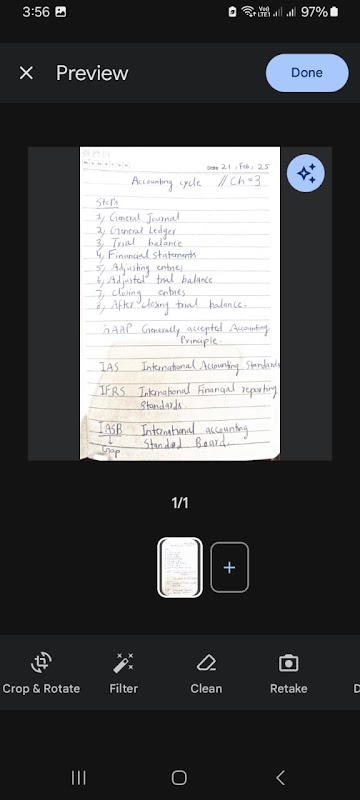 3:56
97%
Preview
Done
Date 21, Feb, 25
Accounting cycle // Ch = 3
Steps
1, General Journal
2, General Ledger
3, Trial balance
4, Financial Statements
5, Adjusting entries
6, Adjusted trial balance
7, closing entries
8, After closing trial balance.
GAAP Generally accepted Accounting
Principle.
IAS International Accounting Standards
IFRS International Financial reporting
Standards.
IASB International accounting
Standard Board.
1/1
+
Crop & Rotate
Filter
Clean
Retake